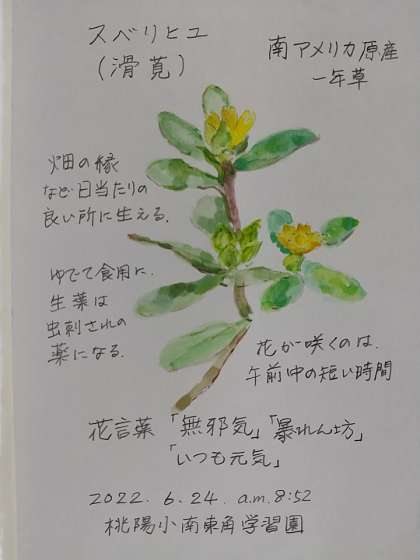 スベリヒユ
(滑莧)
南アメリカ原産
一年草
畑の縁
など日当たりの
良い所に生える.
ゆでて食用に.
生葉は
虫刺されの
薬になる.
花が咲くのは.
午前中の短い時間
花言葉「無邪気」「暴れん坊」
「いつも元気」
2022. 6.24. a.m.8:52
桃陽小南東角学習園